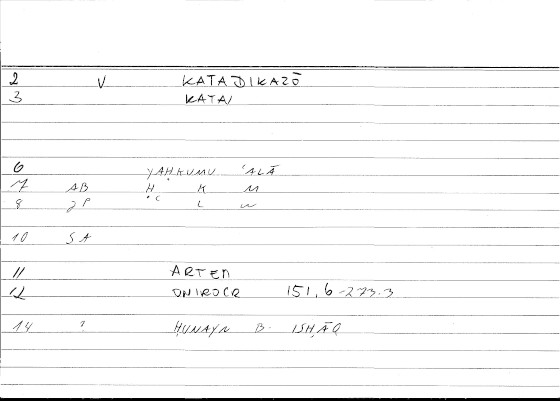 2 V KATADIKAZŌ
3 KATA/
6 YAḤKUMU ʿALĀ
7 AB Ḥ K M
8 JP ʿ L W
10 SA
11 ARTEM
12 ONIROCR 151,6-273.3
14 ? ḤUNAYN B. ISḤĀQ